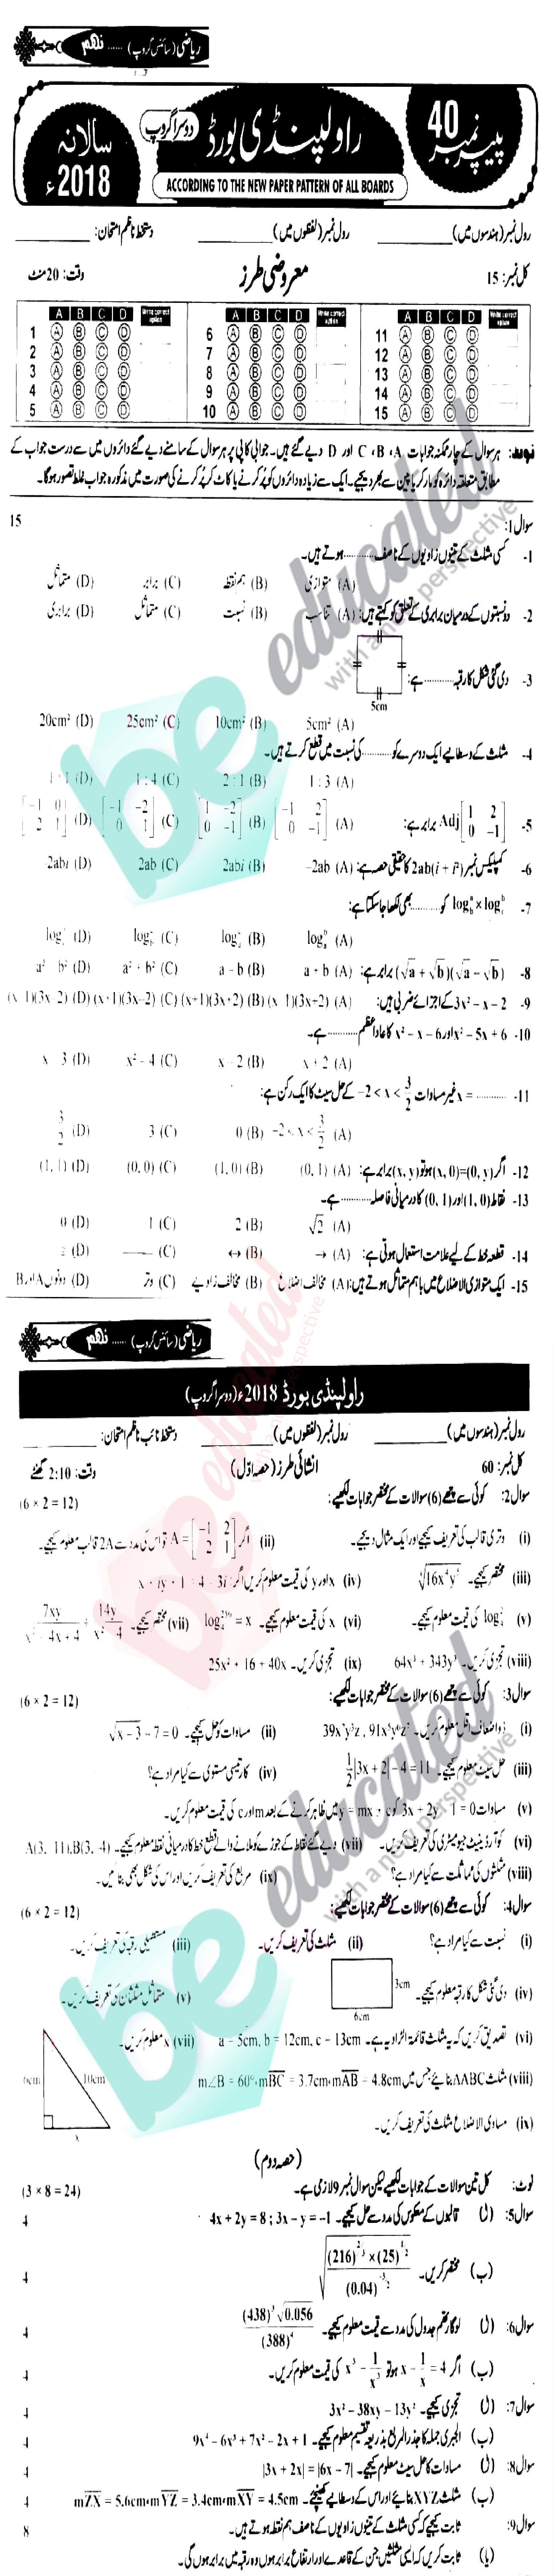 ریاضی (سائنس گروپ) ...... نہم
پیپر نمبر 40
راولپنڈی بورڈ
دوسرا گروپ
سالانہ 2018ء
ACCORDING TO THE NEW PAPER PATTERN OF ALL BOARDS
رول نمبر (ہندسوں میں) رول نمبر (لفظوں میں) دستخط ناظم امتحان:
کل نمبر: 15 معروضی طرز وقت: 20 منٹ
A B C D Write correct option A B C D Write correct option A B C D Write correct option
1 A B C D 6 A B C D 11 A B C D
2 A B C D 7 A B C D 12 A B C D
3 A B C D 8 A B C D 13 A B C D
4 A B C D 9 A B C D 14 A B C D
5 A B C D 10 A B C D 15 A B C D
نوٹ: ہر سوال کے چار ممکنہ جوابات A، B، C اور D دیے گئے ہیں۔ جوابی کاپی پر ہر سوال کے سامنے دیے گئے دائروں میں سے درست جواب کے
مطابق متعلقہ دائرہ کو مارکر یا پین سے بھر دیجیے۔ ایک سے زیادہ دائروں کو پُر کرنے یا کاٹ کر پُر کرنے کی صورت میں مذکورہ جواب غلط تصور ہوگا۔
سوال 1: 15
1- کسی مثلث کے تینوں زاویوں کے ناصف .......... ہوتے ہیں۔
(A) متوازی (B) ہم نقطہ (C) برابر (D) متماثل
2- دو نسبتوں کے درمیان برابری کے تعلق کو کہتے ہیں: (A) تناسب (B) نسبت (C) متماثل (D) برابری
3- دی گئی شکل کا رقبہ .......... ہے:
5cm
5cm² (A) 10cm² (B) 25cm² (C) 20cm² (D)
4- مثلث کے وسطانیے ایک دوسرے کو .......... کی نسبت میں قطع کرتے ہیں۔
1 : 3 (A) 2 : 1 (B) 1 : 4 (C) 1 : 1 (D)
5- Adj [1 2; 0 -1] برابر ہے: (A) [-1 2; 0 -1] (B) [1 -2; 0 -1] (C) [-1 -2; 0 1] (D) [-1 0; 2 1]
6- کمپلیکس نمبر 2ab(i + i²) کا حقیقی حصہ ہے: (A) -2ab (B) 2abi (C) 2ab (D) -2abi
7- کو .......... بھی لکھا جا سکتا ہے:
8- (√a + √b)(√a - √b) برابر ہے: (A) a + b (B) a - b (C) a² + b² (D) a² - b²
9- 3x² - x - 2 کے اجزائے ضربی ہیں: (A) (x-1)(3x+2) (B) (x+1)(3x+2) (C) (x+1)(3x-2) (D) (x-1)(3x-2)
10- x² - 5x + 6 اور x² - x - 6 کا عاد اعظم .......... ہے۔
x + 2 (A) x - 2 (B) x² - 4 (C) x - 3 (D)
11- .......... = x غیر مساوات -2 < x < 3/2 کے حل سیٹ کا ایک رکن ہے:
-2 < x < 3/2 (A) 0 (B) 3 (C) 3/2 (D)
12- اگر (x, 0)=(0, y) ہو تو (x, y) برابر ہے: (A) (0, 1) (B) (1, 0) (C) (0, 0) (D) (1, 1)
13- نقاط (1, 0) اور (0, 1) کا درمیانی فاصلہ .......... ہے۔
√2 (A) 2 (B) 1 (C) 0 (D)
14- قطعہ خط کے لیے علامت استعمال ہوتی ہے: (A) → (B) ↔ (C) — (D)
15- ایک متوازی الاضلاع میں باہم متماثل ہوتے ہیں: (A) مخالف اضلاع (B) مخالف زاویے (C) وتر (D) دونوں A اور B
ریاضی (سائنس گروپ) ...... نہم
راولپنڈی بورڈ 2018ء (دوسرا گروپ)
رول نمبر (ہندسوں میں) رول نمبر (لفظوں میں) دستخط نائب ناظم امتحان:
کل نمبر: 60 انشائی طرز (حصہ اوّل) وقت: 2:10 گھنٹے
سوال 2: کوئی سے چھے (6) سوالات کے مختصر جوابات لکھیے: (6 × 2 = 12)
(i) وتری قالب کی تعریف کیجیے اور ایک مثال دیجیے۔ (ii) اگر A = [-1 2; 2 1] تو اس کی مدد سے 2A قالب معلوم کیجیے۔
(iii) مختصر کیجیے۔ (iv) x اور y کی قیمت معلوم کریں اگر x + iy + 1 = 4 - 3i
(v) کی قیمت معلوم کیجیے۔ (vi) x کی قیمت معلوم کیجیے۔ (vii) مختصر کیجیے۔ 14y/(x² - 4) 7xy/(x² - 4x + 4)
(viii) تجزی کریں۔ 64x³ + 343y³ (ix) تجزی کریں۔ 25x² + 16 + 40x
سوال 3: کوئی سے چھے (6) سوالات کے مختصر جوابات لکھیے: (6 × 2 = 12)
(i) ذواضعاف اقل معلوم کریں۔ (ii) مساوات کو حل کیجیے۔ √(x - 3) - 7 = 0
(iii) حل سیٹ معلوم کیجیے۔ 1/2|3x + 2| - 4 = 11 (iv) کارتیسی مستوی سے کیا مراد ہے؟
(v) مساوات 3x + 2y 1 = 0 کو y = mx + c میں ظاہر کرنے کے بعد m اور c کی قیمت معلوم کریں۔
(vi) کوآرڈینیٹ جیومیٹری کی تعریف کریں۔ (vii) دیے گئے نقاط کے جوڑے کو ملانے والے قطع خط کا درمیانی نقطہ معلوم کیجیے۔ A(3, 11), B(3, -4)
(viii) مثلثوں کی مماثلت سے کیا مراد ہے؟ (ix) مربع کی تعریف کریں اور اس کی شکل بھی بنائیں۔
سوال 4: کوئی سے چھے (6) سوالات کے مختصر جوابات لکھیے: (6 × 2 = 12)
(i) نسبت سے کیا مراد ہے؟ (ii) مثلث کی تعریف کریں۔ (iii) مستطیلی رقبہ کی تعریف کریں۔
(iv) دی گئی شکل کا رقبہ معلوم کیجیے۔ 3cm 6cm (v) متماثل مثلثان کی تعریف کریں۔
(vi) تصدیق کریں کہ یہ مثلث قائمۃ الزاویہ ہے۔ a = 5cm, b = 12cm, c = 13cm (vii) x معلوم کریں۔
6cm 10cm x
(viii) مثلث ΔABC بنائیے جس میں m∠B = 60°، mBC = 3.7cm، mAB = 4.8cm
(ix) مساوی الاضلاع مثلث کی تعریف کریں۔
(حصہ دوم)
نوٹ: کل تین سوالات کے جوابات لکھیے لیکن سوال نمبر 9 لازمی ہے۔ (3 × 8 = 24)
سوال 5: (ا) قالبوں کے معکوس کی مدد سے حل کیجیے۔ 4x + 2y = 8 ; 3x - y = -1 4
(ب) مختصر کریں۔ 4
سوال 6: (ا) لوگارتھم جدول کی مدد سے قیمت معلوم کیجیے۔ (438)³ √0.056 / (388)⁴ 4
(ب) اگر x - 1/x = 4 ہو تو x³ - 1/x³ کی قیمت معلوم کریں۔ 4
سوال 7: (ا) تجزی کیجیے۔ 3x² - 38xy - 13y² 4
(ب) الجبری جملہ کا جذر المربع بذریعہ تقسیم معلوم کیجیے۔ 9x⁴ - 6x³ + 7x² - 2x + 1 4
سوال 8: (ا) مساوات کا حل سیٹ معلوم کیجیے۔ |3x + 2x| = |6x - 7| 4
(ب) مثلث XYZ بنائیے اور اس کے وسطانیے کھینچئے۔ mZX = 5.6cm، mYZ = 3.4cm، mXY = 4.5cm 4
سوال 9: ثابت کیجیے کہ کسی مثلث کے تینوں زاویوں کے ناصف ہم نقطہ ہوتے ہیں۔ 8
(یا) ثابت کریں کہ ایسی مثلثیں جن کے قاعدے اور ارتفاع برابر ہوں وہ رقبہ میں برابر ہوں گی۔
be educated
with a new perspective